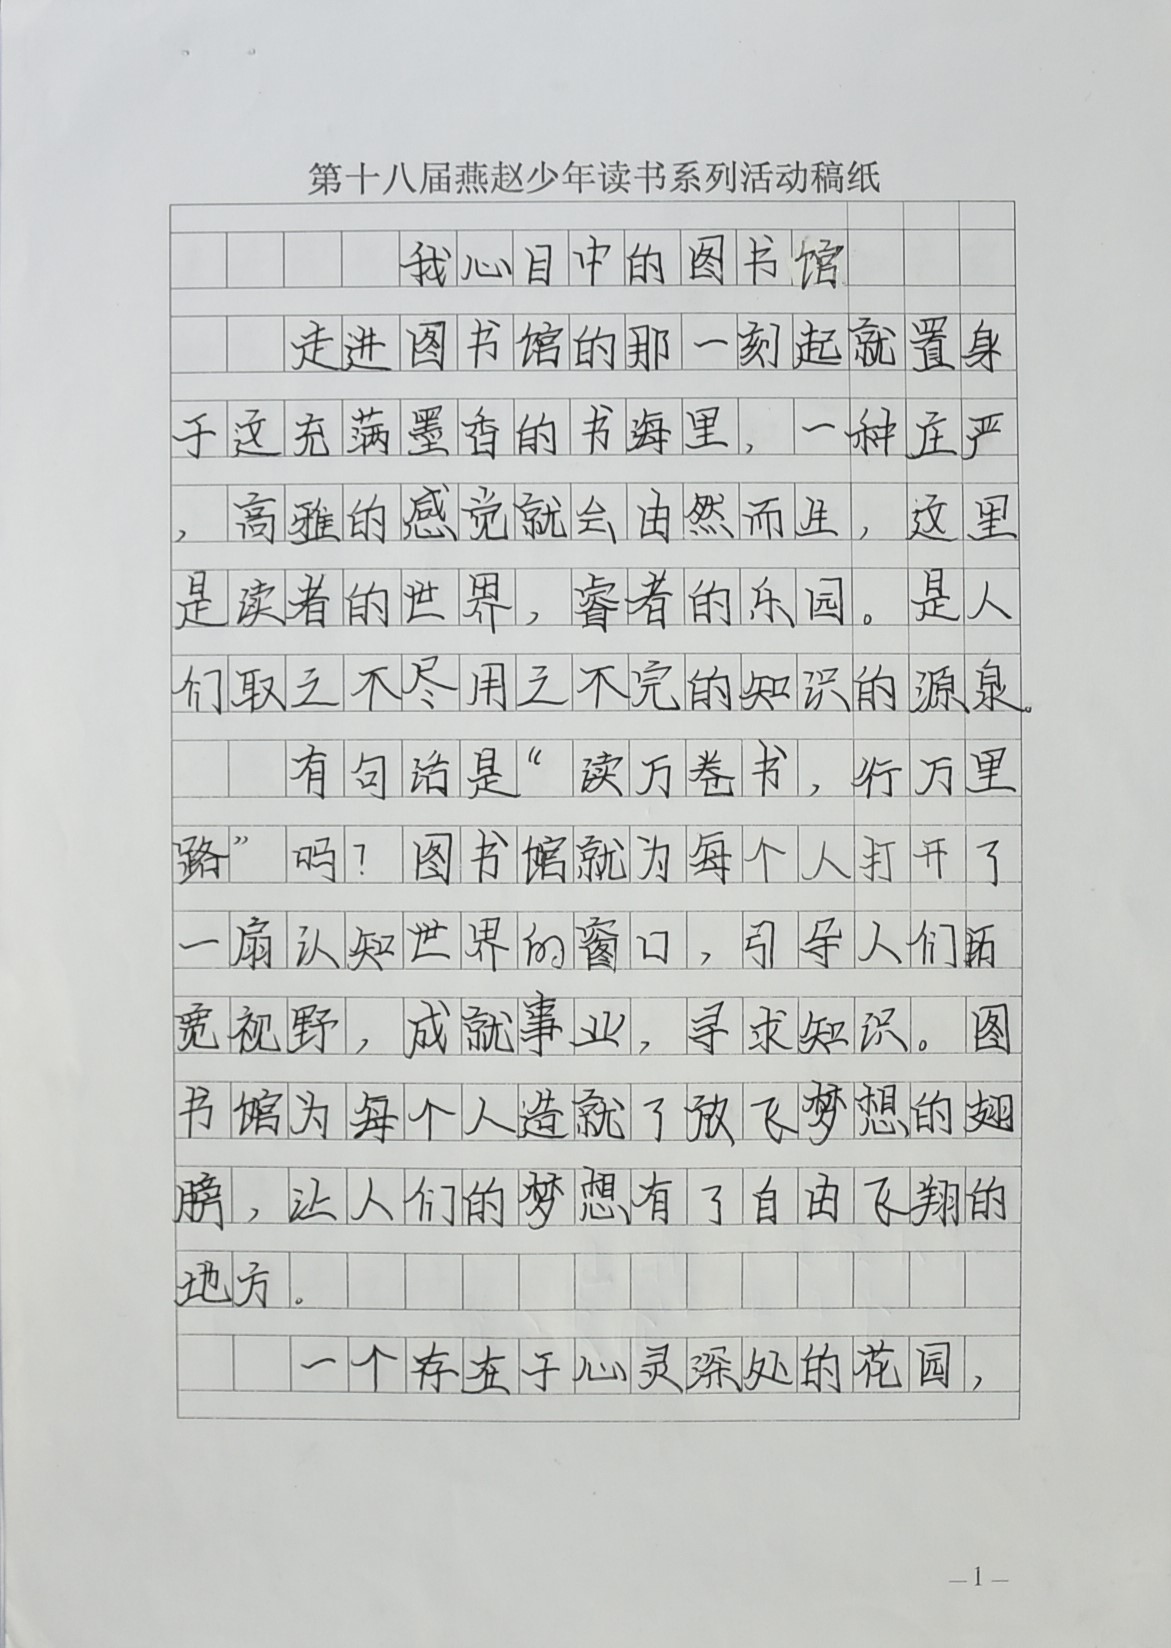 第十八届燕赵少年读书系列活动稿纸
我心目中的图书馆
走进图书馆的那一刻起就置身
于这充满墨香的书海里，一种庄严
，高雅的感觉就会由然而生，这里
是读者的世界，睿者的乐园。是人
们取之不尽用之不完的知识的源泉。
有句话是“读万卷书，行万里
路”吗？图书馆就为每个人打开了
一扇认知世界的窗口，引导人们拓
宽视野，成就事业，寻求知识。图
书馆为每个人造就了放飞梦想的翅
膀，让人们的梦想有了自由飞翔的
地方。
一个存在于心灵深处的花园，
—1—